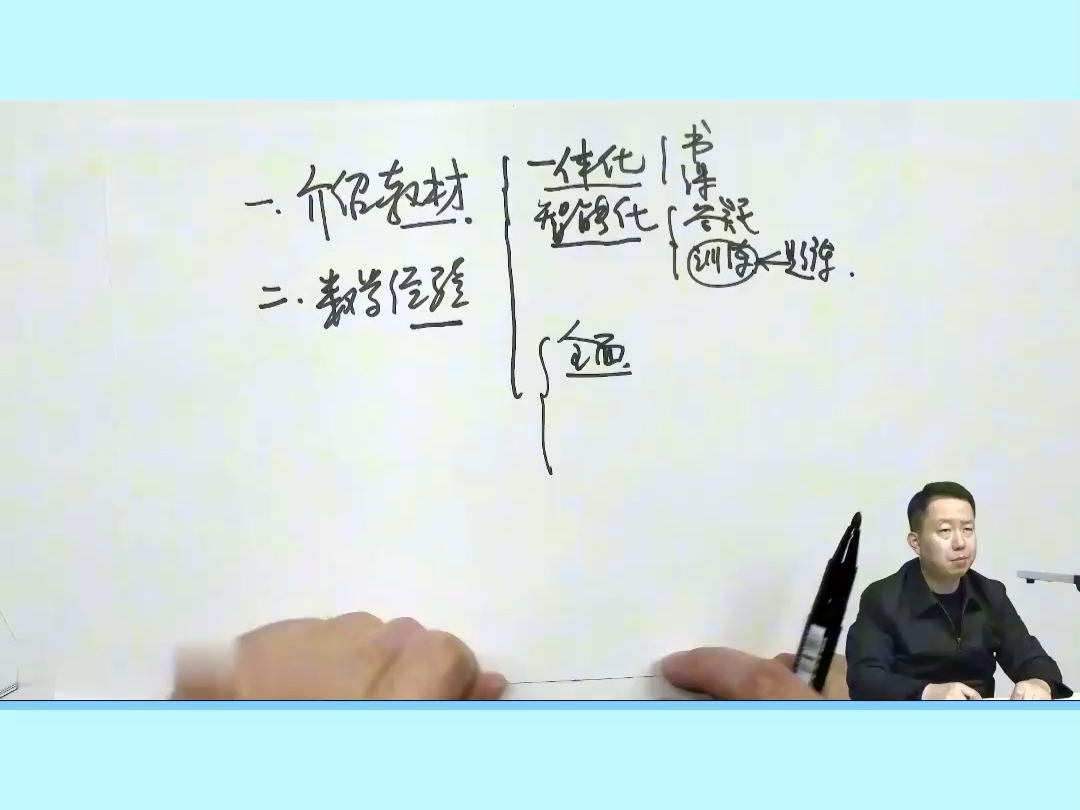 一.介绍教材.
二.数学经验
一体化
书
课
智能化
答疑
训练
题课.
全面.